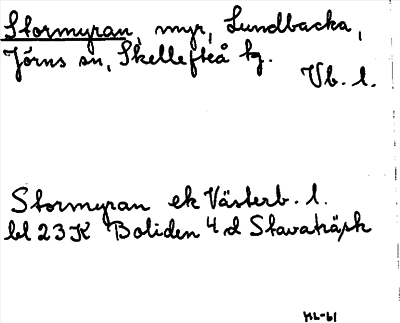 Stormyran, myr, Lundbacka,
Jörns sn, Skellefteå kg.
Vb. l.
Stormyran ek Västerb. l.
bl 23K Boliden 4 d Stavaträsk
ML-61